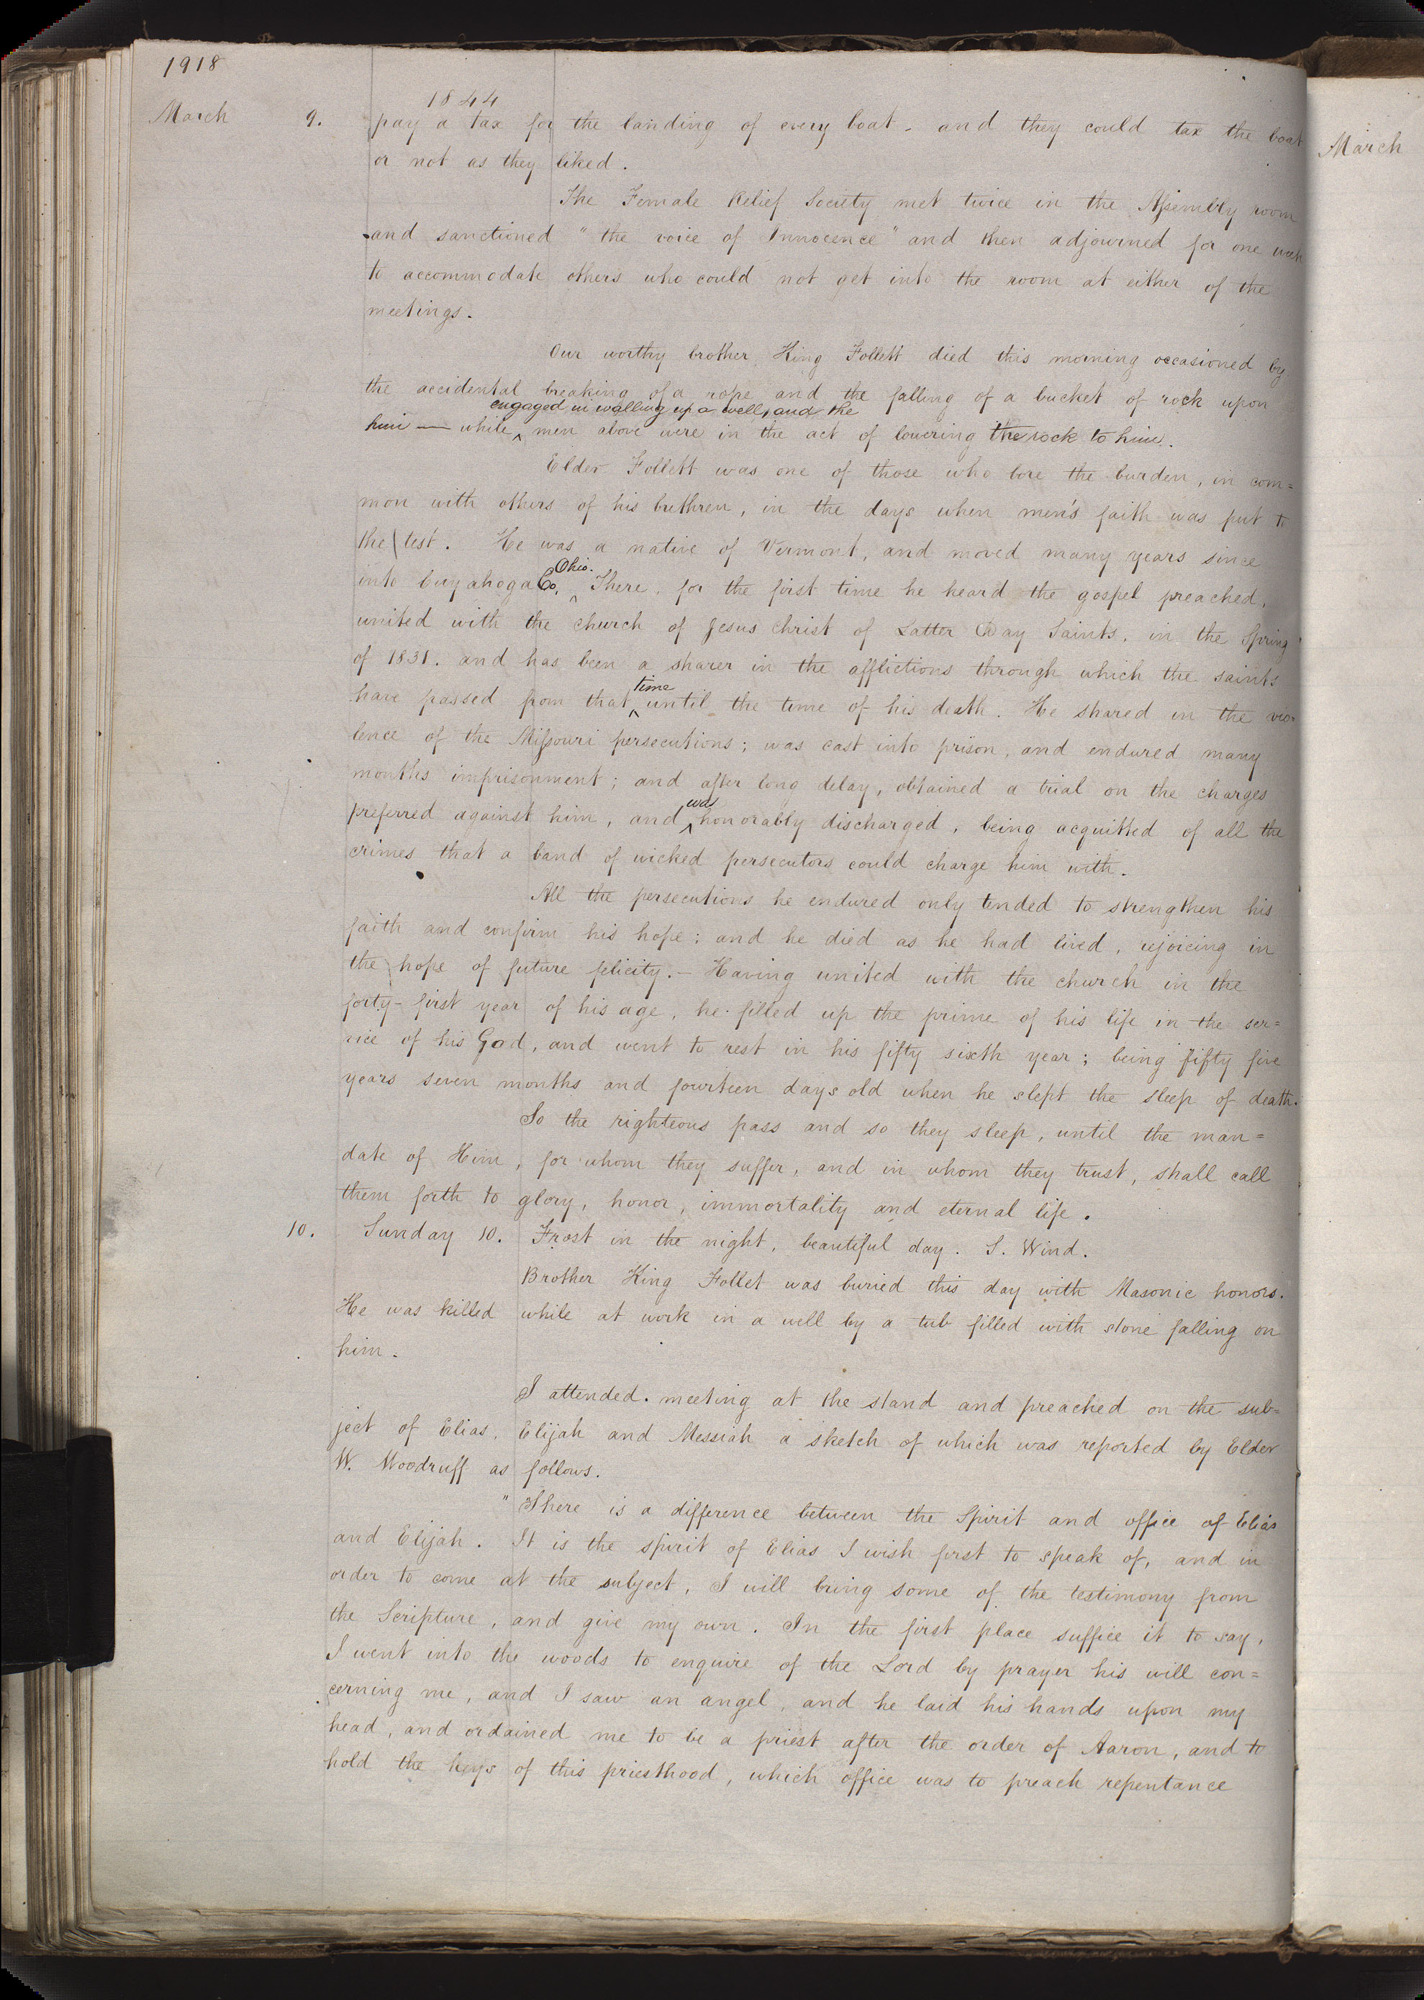 1918
1844
March 9. pay a tax for the landing of every boat - and they could tax the boat
March
or not as they liked.
The Female Relief Society met twice in the Assembly room
and sanctioned "the voice of Innocence" and then adjourned for one week
to accommodate others who could not get into the room at either of the
meetings.
Our worthy brother King Follett died this morning occasioned by
the accidental breaking of a rope and the falling of a bucket of rock upon
engaged in walling up a well, and the
him — while ^ men above were in the act of lowering the rock to him.
Elder Follett was one of those who bore the burden, in com=
mon with others of his brethren, in the days when men's faith was put to
the test. He was a native of Vermont, and moved many years since
Ohio.
into Cuyahoga Co. ^ There, for the first time he heard the gospel preached,
united with the church of Jesus Christ of Latter Day Saints, in the Spring
of 1831. and has been a sharer in the afflictions through which the saints
time
have passed from that ^ until the time of his death. He shared in the vio-
lence of the Missouri persecutions; was cast into prison, and endured many
months imprisonment; and after long delay, obtained a trial on the charges
was
preferred against him, and ^ honorably discharged, being acquitted of all the
crimes that a band of wicked persecutors could charge him with.
All the persecutions he endured only tended to strengthen his
faith and confirm his hope; and he died as he had lived, rejoicing in
the hope of future felicity. — Having united with the church in the
forty-first year of his age, he filled up the prime of his life in the ser=
vice of his God, and went to rest in his fifty sixth year; being fifty five
years seven months and fourteen days old when he slept the sleep of death.
So the righteous pass and so they sleep, until the man=
date of Him, for whom they suffer, and in whom they trust, shall call
them forth to glory, honor, immortality and eternal life.
10. Sunday 10. Frost in the night, beautiful day. S. Wind.
Brother King Follet was buried this day with Masonic honors.
He was killed while at work in a well by a tub filled with stone falling on
him.
I attended meeting at the stand and preached on the sub=
ject of Elias, Elijah and Messiah a sketch of which was reported by Elder
W. Woodruff as follows.
"There is a difference between the Spirit and office of Elias
and Elijah. It is the spirit of Elias I wish first to speak of, and in
order to come at the subject, I will bring some of the testimony from
the Scripture, and give my own. In the first place suffice it to say,
I went into the woods to enquire of the Lord by prayer his will con=
cerning me, and I saw an angel, and he laid his hands upon my
head, and ordained me to be a priest after the order of Aaron, and to
hold the keys of this priesthood, which office was to preach repentance